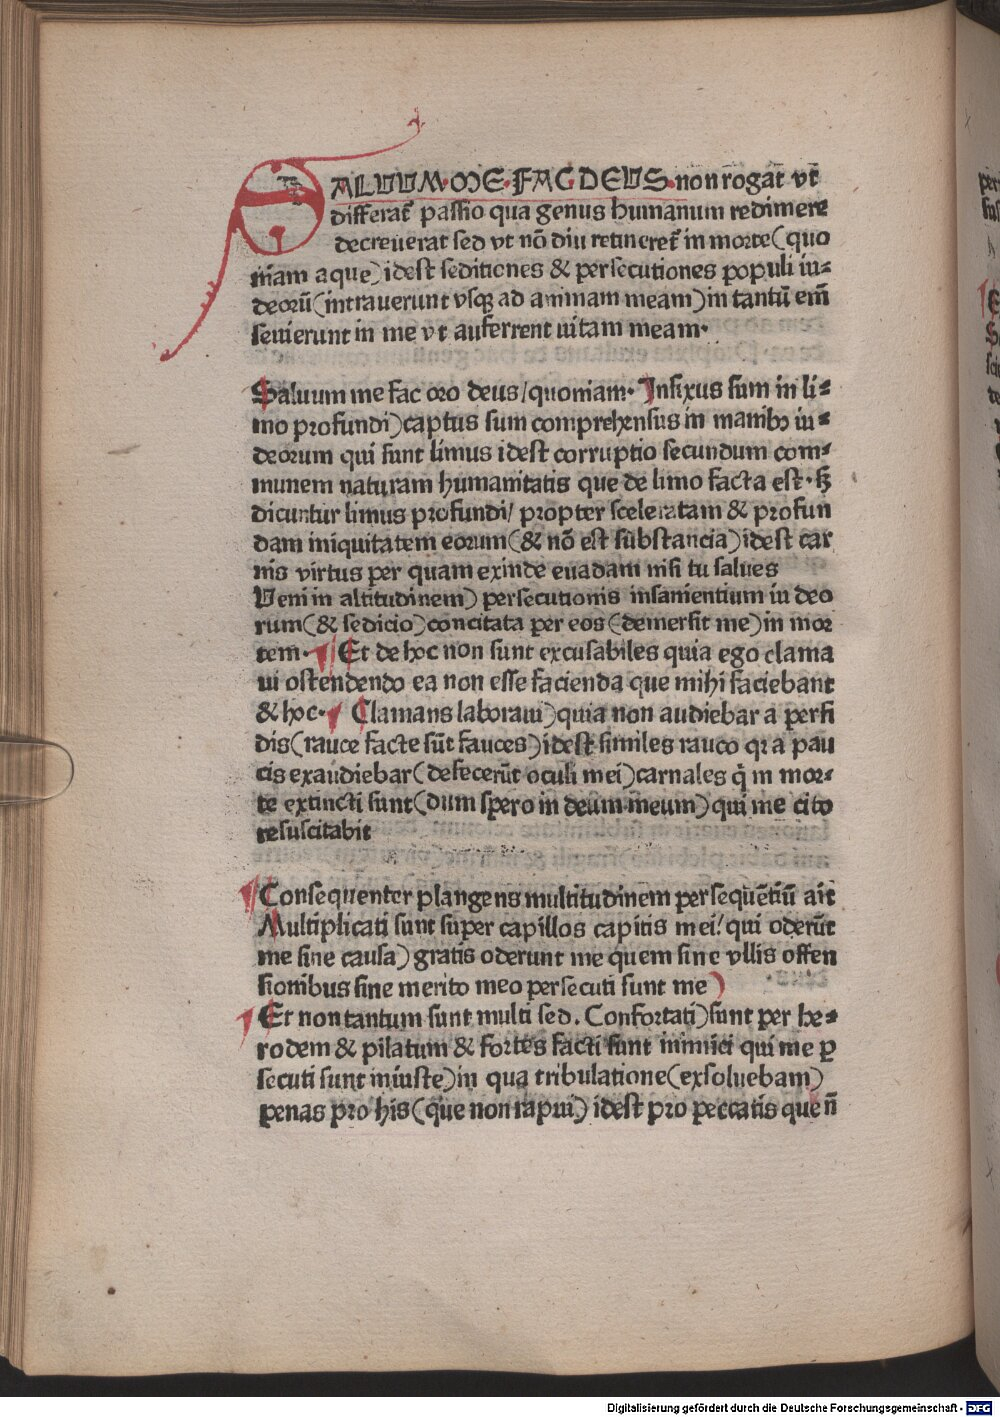 SALUUM·ME·FAC·DEUS·non rogat̄ vt̄
differat̄ passio qua genus humanum redimere
decreuerat sed vt nō diu retineret̄ in morte(quo
niam aque)idest seditiones & persecutiones populi iu⸗
deorū(intrauerunt vsqꝫ ad animam meam)in tantū em̄
seuierunt in me vt auferrent uitam meam·
Saluum me fac oro deus/quoniam· Infixus sum in li⸗
mo profundi)captus sum comprehensus in manibꝫ iu⸗
deorum qui sunt limus idest corruptio secundum com⸗
munem naturam humanitatis que de limo facta est·sꝫ
dicuntur limus profundi/ propter sceleratam & profun
dam iniquitatem eorum(& nō est substancia)idest car
nis virtus per quam exinde euadam nisi tu salues
Veni in altitudinem) persecutionis insanientium iu deo
rum(& sedicio)concitata per eos(demersit me)in mor
tem· Et de hoc non sunt excusabiles quia ego clama
ui ostendendo ea non esse facienda que mihi faciebant
& hoc· Clamans laboraui)quia non audiebar a perfi
dis(rauce facte sūt fauces)idest similes rauco qꝛ a pau
cis exaudiebar(defecerūt oculi mei)carnales q̄ in mor⸗
te extincti sunt(dum spero in deum meum)qui me cito
resuscitabit
Consequenter plangens multitudinem persequētiū ait
Multiplicati sunt super capillos capitis mei/qui oderūt
me sine causa)gratis oderunt me quem sine vllis offen
sionibus sine merito meo persecuti sunt me)
Et non tantum sunt multi sed. Confortati)sunt per he⸗
rodem & pilatum & fortes facti sunt inimici qui me ꝑ
secuti sunt iniuste)in qua tribulatione(exsoluebam)
penas pro his(que non rapui)idest pro peccatis que n̄
Digitalisierung gefördert durch die Deutsche Forschungsgemeinschaft - DFG